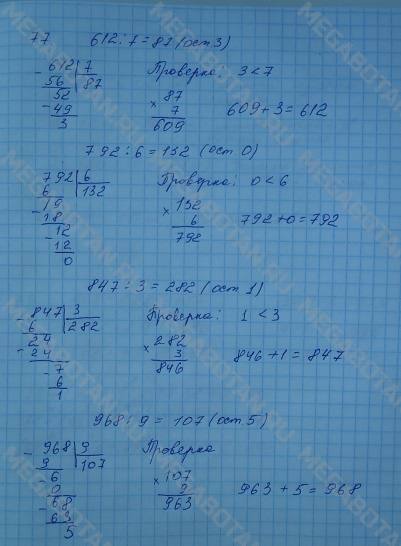 77 612 : 7 = 87 (ост 3)
612 | 7 Проверка: 3 < 7
- 56 87
52 × 87
- 49 7 609 + 3 = 612
3 609
792 : 6 = 132 (ост 0)
792 | 6 Проверка: 0 < 6
6 132
- 19 × 132
18 6 792 + 0 = 792
- 12 792
12
0
847 : 3 = 282 (ост 1)
- 847 | 3 Проверка: 1 < 3
6 282
- 24 × 282
24 3 846 + 1 = 847
- 7 846
6
1
968 : 9 = 107 (ост 5)
- 968 | 9 Проверка
9 107
- 6 × 107
0 9 963 + 5 = 968
- 68 963
63
5
MEGABOTAN.RU